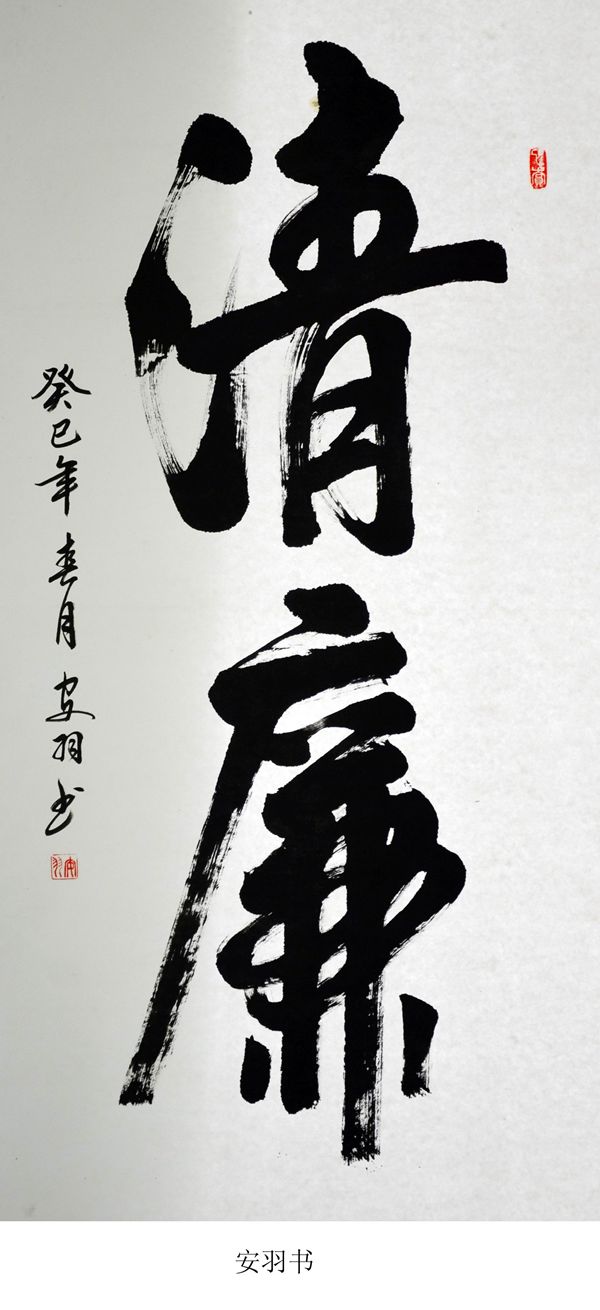 清廉
癸巳年春月安羽书
安羽
安羽书